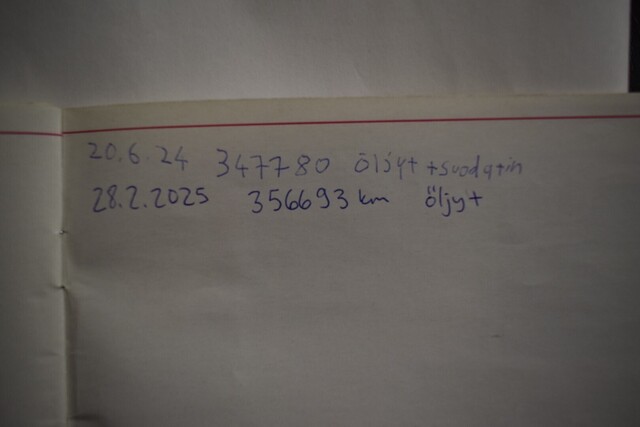 20.6.24 347780 öljyt +suodatin
28.2.2025 356693 km öljyt